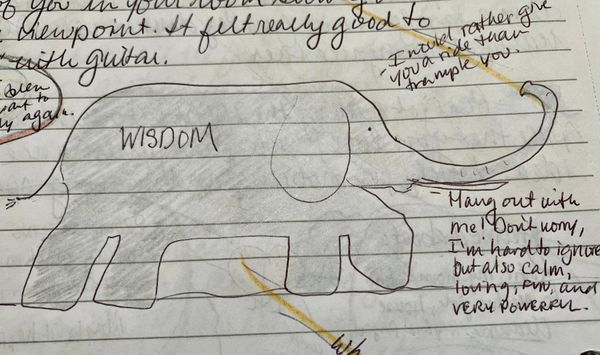 of you in your room
viewpoint. It felt really good to
with guitar.
- I would rather give
you a ride than
trample you.
been
want to
again.
WISDOM
- Hang out with
me! Don't worry,
I'm hard to ignore
but also calm,
loving, fun, and
VERY POWERFUL.
Wh